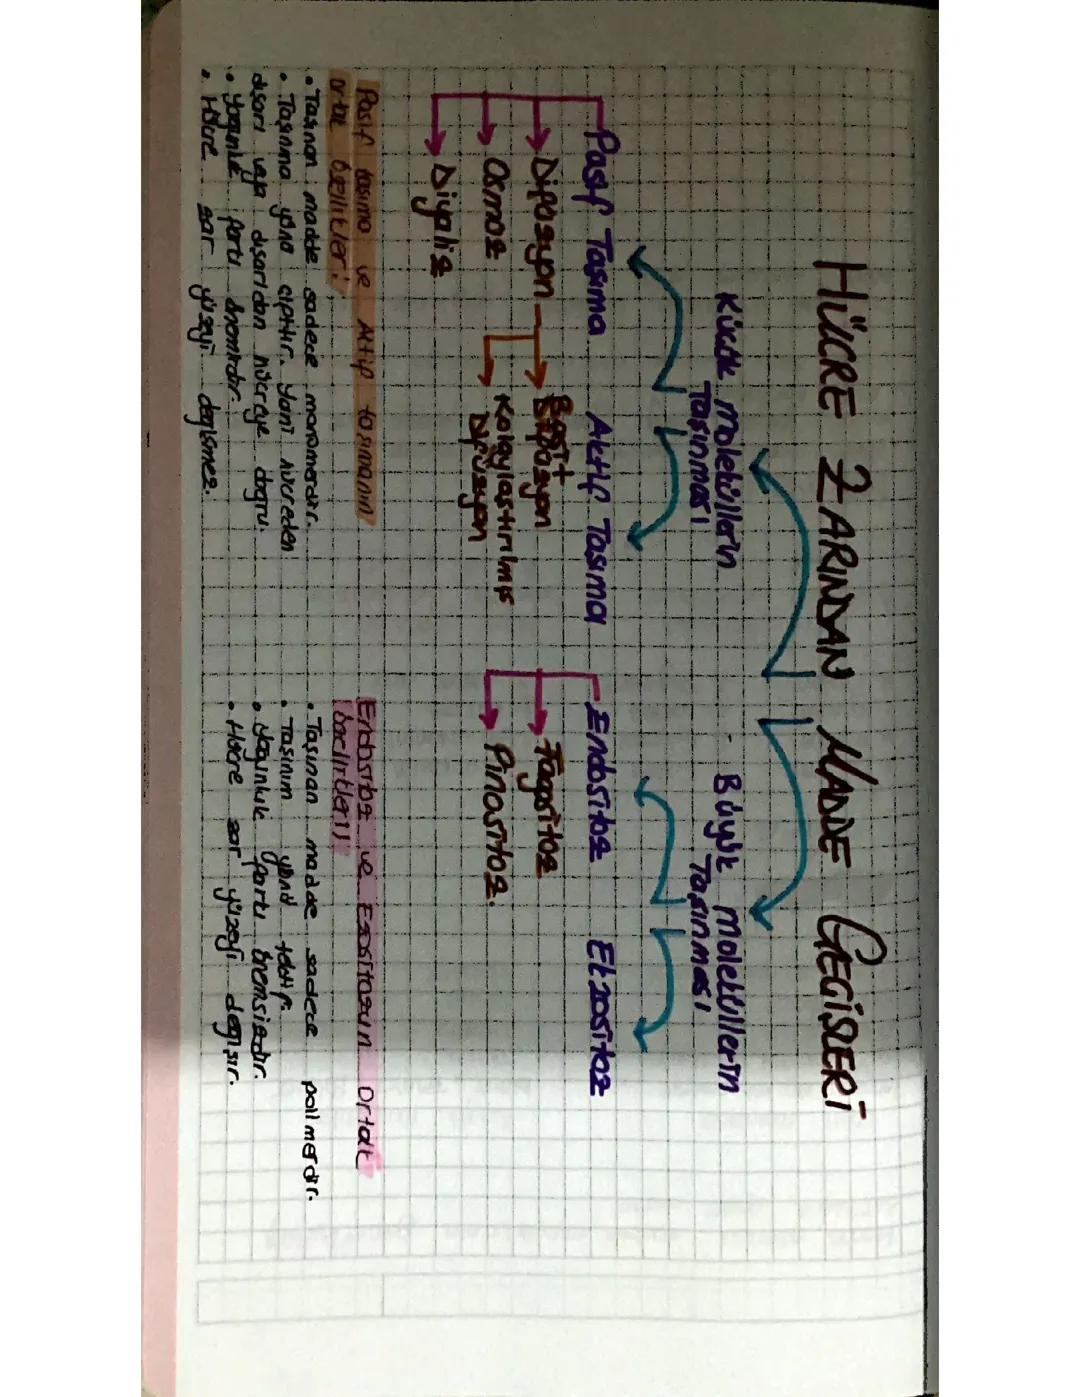 HÜCRE ZARINDAN MADDE GEÇİŞLERİ
Küçük moleküllerin
Taşınması
- Büyük moleküllerin
Taşınması
Pasif Taşıma
Aktif Taşıma
Endositoz
Ekzositoz
Difüzyon
Basit
Difüzyon
Osmoz
Kolaylaştırılmış
Difüzyon
Diyaliz
Fagositoz
Pinositoz.
Pasif taşıma ve Aktif taşımanın
ortak özellikleri:
• Taşınan madde sadece monomerdir.
• Taşınma yönü çifttir. Yani hücreden
dışarı veya dışarıdan hücreye doğru.
• Yoğunluk farkı önemlidir.
• Hücre zar yüzeyi değişmez.
Endositoz ve Egzositozun ortak
özellikleri
• Taşınan madde sadece polimerdir.
• Taşınım yönü tektir.
• Yoğunluk farkı önemsizdir.
• Hücre zar yüzeyi değişir.